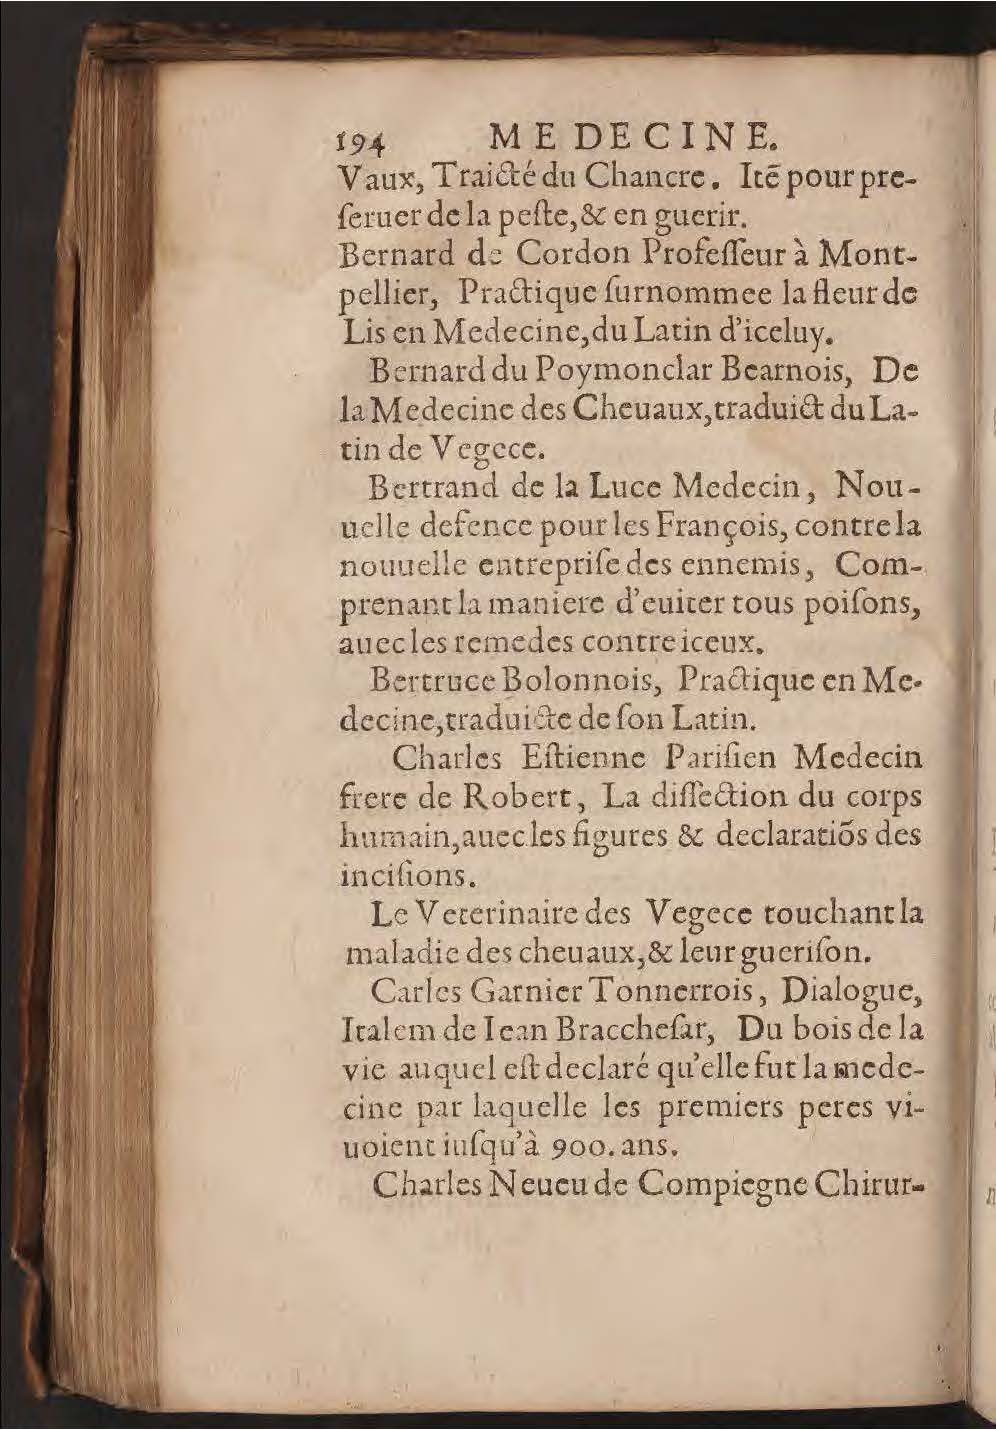 194 MEDECINE.
Vaux, Traicté du Chancre. Itẽ pour pre-
ſeruer de la peſte, & en guerir.
Bernard de Cordon Profeſſeur à Mont-
pellier, Practique ſurnommee la fleur de
Lis en Medecine, du Latin d'iceluy.
Bernard du Poymonclar Bearnois, De
la Medecine des Cheuaux, traduict du La-
tin de Vegece.
Bertrand de la Luce Medecin, Nou-
uelle defence pour les François, contre la
nouuelle entrepriſe des ennemis, Com-
prenant la maniere d'euiter tous poiſons,
auec les remedes contre iceux.
Bertruce Bolonnois, Practique en Me-
decine, traduicte de ſon Latin.
Charles Eſtienne Pariſien Medecin
frere de Robert, La diſſection du corps
humain, auec les figures & declaratiõs des
inciſions.
Le Veterinaire des Vegece touchant la
maladie des cheuaux, & leur gueriſon.
Carles Garnier Tonnerrois, Dialogue,
Italem de Iean Braccheſar, Du bois de la
vie auquel eſt declaré qu'elle fut la mede-
cine par laquelle les premiers peres vi-
uoient iuſqu'à 900. ans.
Charles Neueu de Compiegne Chirur-